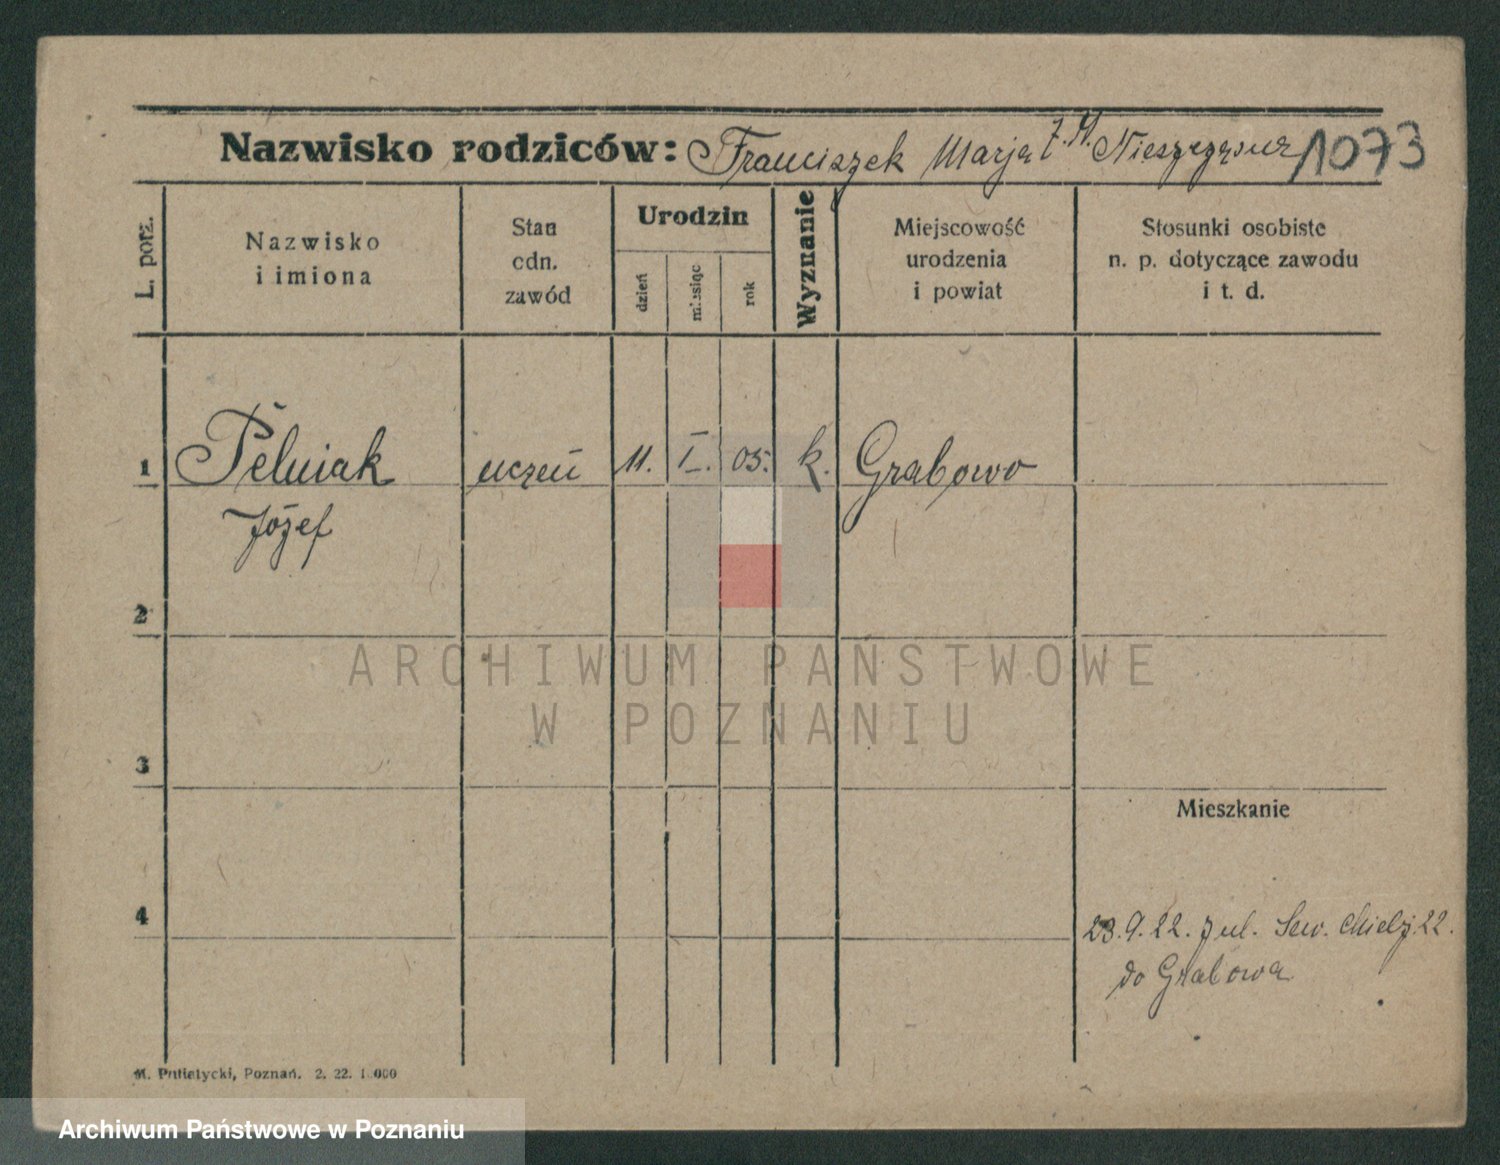 Nazwisko rodziców: Franciszek Marja z. N. 1073
L. porz.
Nazwisko
i imiona
Stan
cdn.
zawód
Urodzin
dzień
miesiąc
rok
Wyznanie
Miejscowość
urodzenia
i powiat
Stosunki osobiste
n. p. dotyczące zawodu
i t. d.
1 Pelniak uczeń 11. I. 05. k. Grabowo
Józef
2
3
Mieszkanie
4
23.9.22. z ul. Sew. Mielż. 22.
do Grabowa
M. Putiatycki, Poznań. 2. 22. 1 000
ARCHIWUM PAŃSTWOWE
W POZNANIU
Archiwum Państwowe w Poznaniu